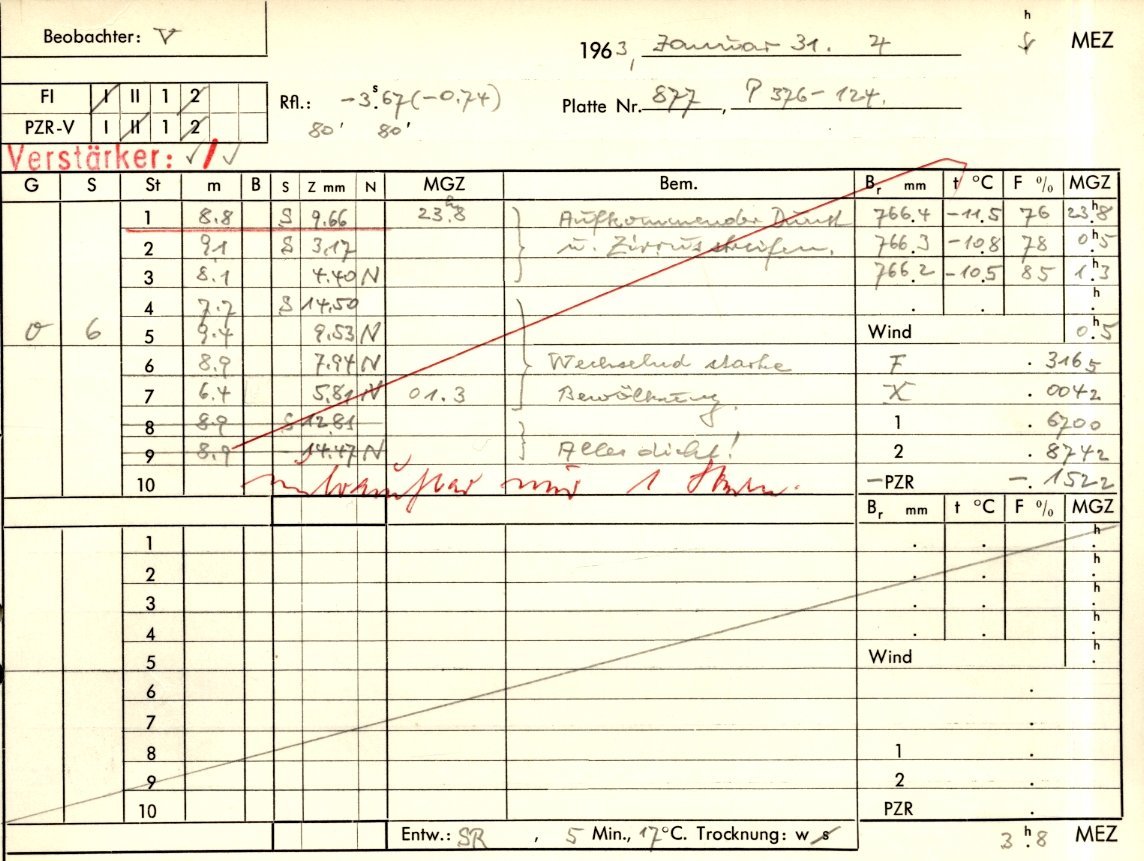 Beobachter: V
1963, Januar 31. 4 h MEZ
FI I II 1 2
Rfl.: -3ˢ.67 (-0.74)
Platte Nr. 877, P 376-124.
PZR-V I II 1 2
80' 80'
Verstärker:
G S St m B S Z mm N MGZ Bem. Br mm t °C F % MGZ
1 8.8 S 9.66 23ʰ.8 Aufkommender Dunst 766.4 -11.5 76 23ʰ.8
2 9.1 S 3.17 u. Zirrusstreifen. 766.3 -10.8 78 0ʰ.5
3 8.1 4.40 N 766.2 -10.5 85 1ʰ.3
4 7.7 S 14.50 . . h
0 6 5 9.4 9.53 N Wind 0ʰ.5
6 8.9 7.94 N Wechselnd starke F . 3165
7 6.4 5.81 N 01.3 Bewölkung. X . 0042
8 8.9 S 12.81 1 . 6700
9 8.9 - 14.47 N Alles dicht! 2 . 8742
10 nur 1 -PZR -. 1522
Br mm t °C F % MGZ
1 . . h
2 . . h
3 . . h
4 . . h
5 Wind h
6 .
7 .
8 1 .
9 2 .
10 PZR .
Entw.: SR, 5 Min., 17°C. Trocknung: w s 3ʰ.8 MEZ